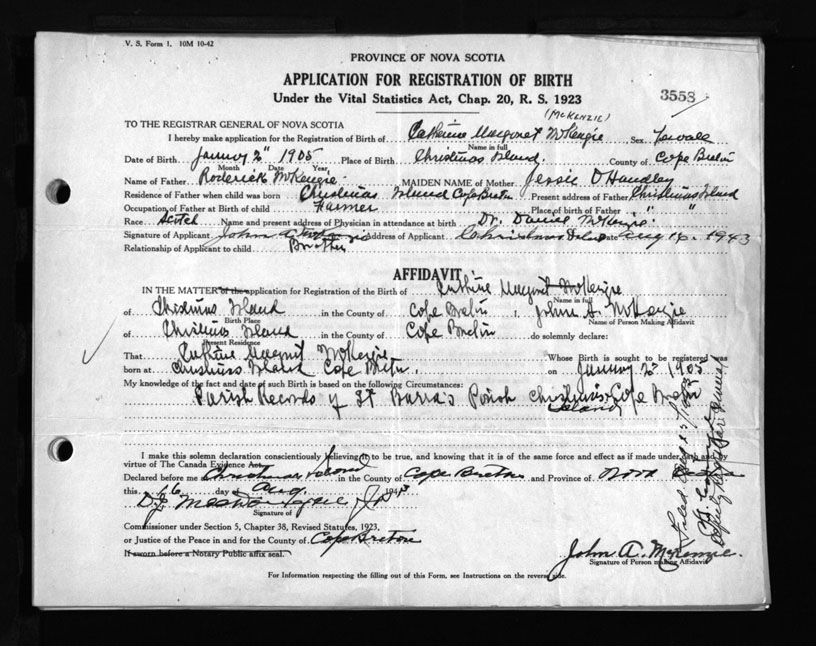 V. S. Form 1. 10M 10-42
PROVINCE OF NOVA SCOTIA
APPLICATION FOR REGISTRATION OF BIRTH
3558
Under the Vital Statistics Act, Chap. 20, R. S. 1923
(McKENZIE)
TO THE REGISTRAR GENERAL OF NOVA SCOTIA
I hereby make application for the Registration of Birth of Catherine Margaret McKenzie Sex Female
Name in full
Date of Birth January 2" 1905 Place of Birth Christmas Island County of Cape Breton
Month Date Year
Name of Father Roderick McKenzie MAIDEN NAME of Mother Jessie O Handley
Residence of Father when child was born Christmas Island Cape Breton Present address of Father Christmas Island
Occupation of Father at Birth of child Farmer Place of birth of Father " "
Race Scotch Name and present address of Physician in attendance at birth Dr. Daniel McKenzie
Signature of Applicant John A. Address of Applicant Christmas Date Aug 16. 1943
Relationship of Applicant to child Brother
AFFIDAVIT
IN THE MATTER of the application for Registration of the Birth of Cathrine Margret McKenzie
Name in full
of Christmas Island in the County of Cape Breton I, John A. McKenzie
Birth Place Name of Person Making Affidavit
of Christmas Island in the County of Cape Breton do solemnly declare:
Present Residence
That Cathrine Margret McKenzie Whose Birth is sought to be registered was
born at Christmas Island Cape Breton on January 2" 1905
My knowledge of the fact and date of such Birth is based on the following Circumstances:
Parish Records of St Barra's Parish Christmas Cape Breton
Island
I make this solemn declaration conscientiously believing it to be true, and knowing that it is of the same force and effect as if made under oath and by
virtue of The Canada Evidence Act.
Declared before me Christmas Island in the County of Cape Breton and Province of Nova Scotia
this 16 day Aug. 194
Signature of
Commissioner under Section 5, Chapter 38, Revised Statutes, 1923.
or Justice of the Peace in and for the County of Cape Breton
If sworn before a Notary Public affix seal.
John A. McKenzie.
Signature of Person making Affidavit
For Information respecting the filling out of this Form, see Instructions on the reverse side.